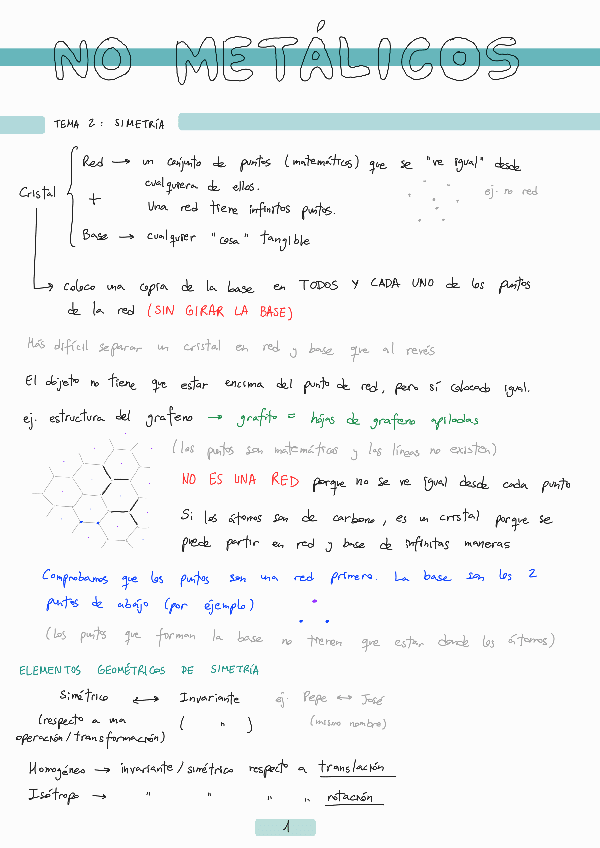 NO METÁLICOS
TEMA 2: SIMETRÍA
Red → un conjunto de puntos (matemáticos) que se "ve igual" desde
cualquiera de ellos.
ej. no red
Cristal
+
Una red tiene infinitos puntos.
Base → cualquier "cosa" tangible
→ coloco una copia de la base en TODOS Y CADA UNO de los puntos
de la red (SIN GIRAR LA BASE)
Más difícil separar un cristal en red y base que al revés
El objeto no tiene que estar encima del punto de red, pero sí colocado igual.
ej. estructura del grafeno → grafito = hojas de grafeno apiladas
(los puntos son matemáticos y las líneas no existen)
NO ES UNA RED porque no se ve igual desde cada punto
Si los átomos son de carbono, es un cristal porque se
puede partir en red y base de infinitas maneras
Comprobamos que los puntos son una red primero. La base son los 2
puntos de abajo (por ejemplo)
(los puntos que forman la base no tienen que estar donde los átomos)
ELEMENTOS GEOMÉTRICOS DE SIMETRÍA
Simétrico ↔ Invariante ej. Pepe ↔ José
(respecto a una ( " ) (mismo nombre)
operación/transformación)
Homogéneo → invariante/simétrico respecto a translación
Isótropo → " " " " rotación
1